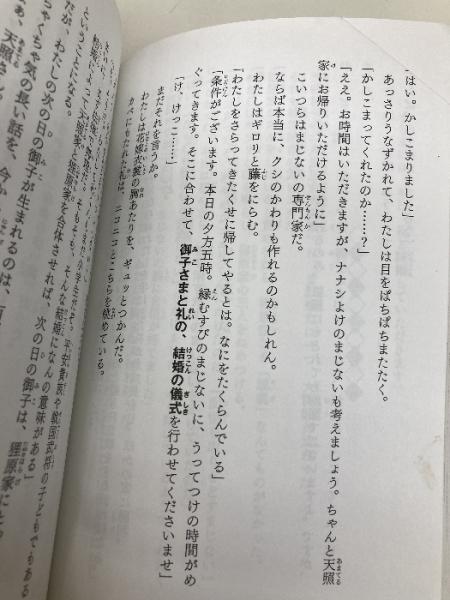 「はい。かしこまりました」
あっさりうなずかれて、わたしは目をぱちぱちまたたく。
「かしこまってくれたのか……？」
「ええ。お時間はいただきますが、ナナシよけのまじないも考えましょう。ちゃんと天照
家にお帰りいただけるように」
こいつらはまじないの専門家だ。
ならば本当に、クシのかわりも作れるのかもしれん。
わたしはギロリと藤をにらむ。
「わたしをさらってきたくせに帰してやるとは。なにをたくらんでいる」
「条件がございます。本日の夕方五時。縁むすびのまじないに、うってつけの時間がめ
ぐってきます。そこに合わせて、御子さまと礼の、結婚の儀式を行わせてくださいませ」
「け、けっこ……」
まだそれを言うか。
わたしは花嫁衣裳の胸あたりを、ギュッとつかんだ。
カベにもたれた礼は、ニコニコとこちらを眺めている。
小学生だぞ。平安貴族や戦国武将の子どもでもある
そもそも、そんな結婚になんの意味がある」
天照家と狸原家を合体させれば、次の日の御子は、狸原家に
ということになる。
だが、わたしの次の日の御子が生まれるのは、
ちゃくちゃ気の長い話を、今か